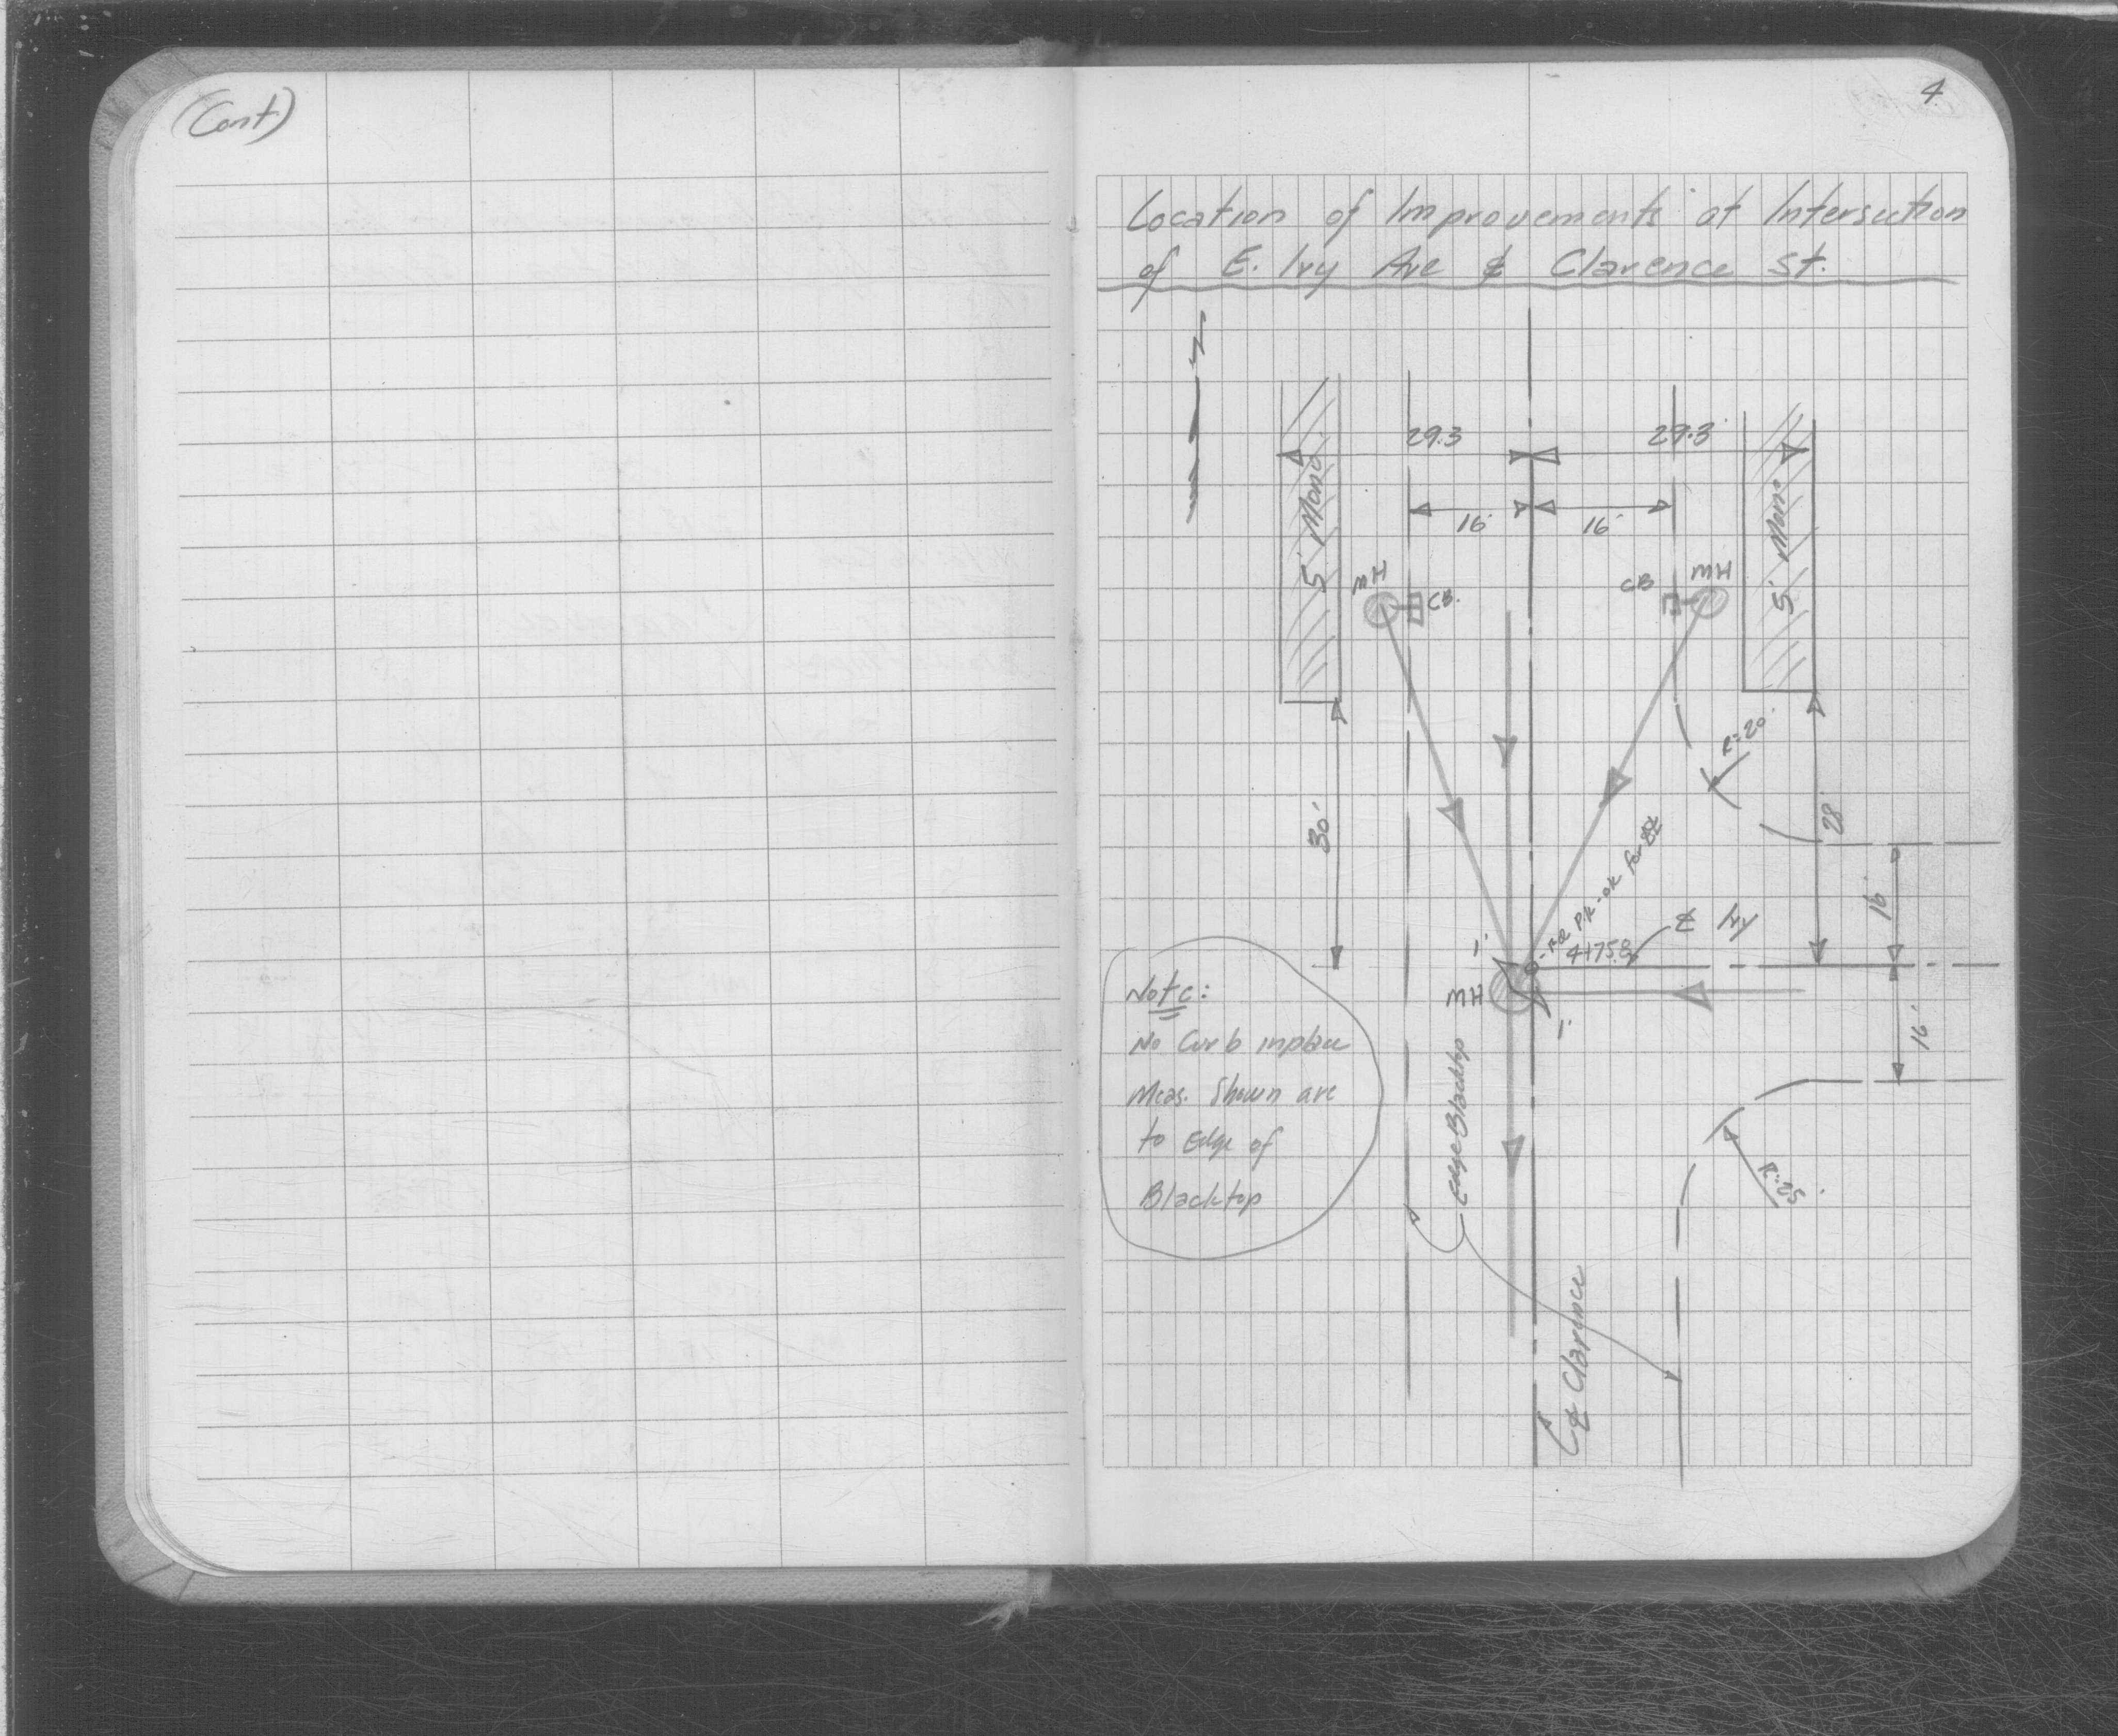 (Cont)
4
Location of Improvements at Intersection
of E. Ivy Ave & Clarence St.
29.3
29.3'
16'
16'
5' Mono
5' Mono
MH
CB.
CB
MH
R=20'
30'
28'
16'
16'
Fd. P.K. - ok for
4+75.8
℄ Ivy
1'
MH
1'
Note:
No Curb inplace
Meas. Shown are
to Edge of
Blacktop
Edge Blacktop
R=25'
℄ Clarence